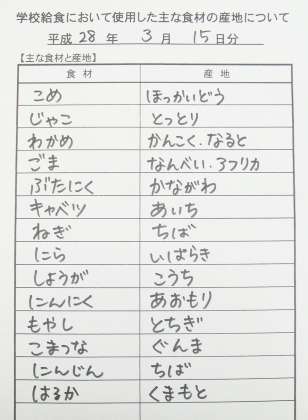 学校給食において使用した主な食材の産地について
平成 28 年 3 月 15 日分
【主な食材と産地】
食材 産地
こめ ほっかいどう
じゃこ とっとり
わかめ かんこく・なると
ごま なんべい・アフリカ
ぶたにく かながわ
キャベツ あいち
ねぎ ちば
にら いばらき
しょうが こうち
にんにく あおもり
もやし とちぎ
こまつな ぐんま
にんじん ちば
はるか くまもと